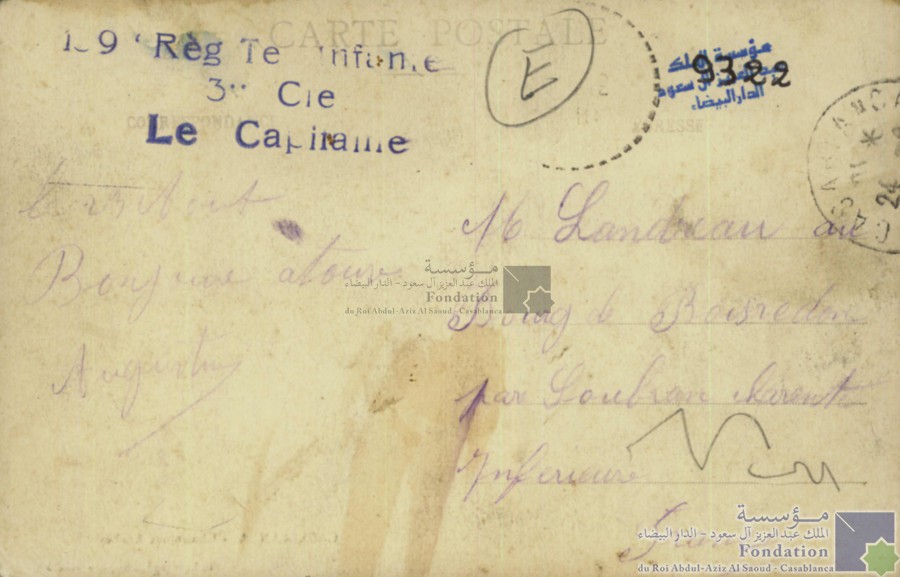 CARTE POSTALE
139e Règ Te Infante
3e Cie
Le Capitaine
E
مؤسسة الملك
عبد العزيز آل سعود
الدار البيضاء
9322
CORRESPONDANCE
ADRESSE
CASABLANCA
24
Bonjour a tous
Augustin
Landreau au
Bourg de Boisredon
par Soubran Charente
Inferieure
مؤسسة
الملك عبد العزيز آل سعود - الدار البيضاء
Fondation
du Roi Abdul-Aziz Al Saoud - Casablanca
مؤسسة
الملك عبد العزيز آل سعود - الدار البيضاء
Fondation
du Roi Abdul-Aziz Al Saoud - Casablanca